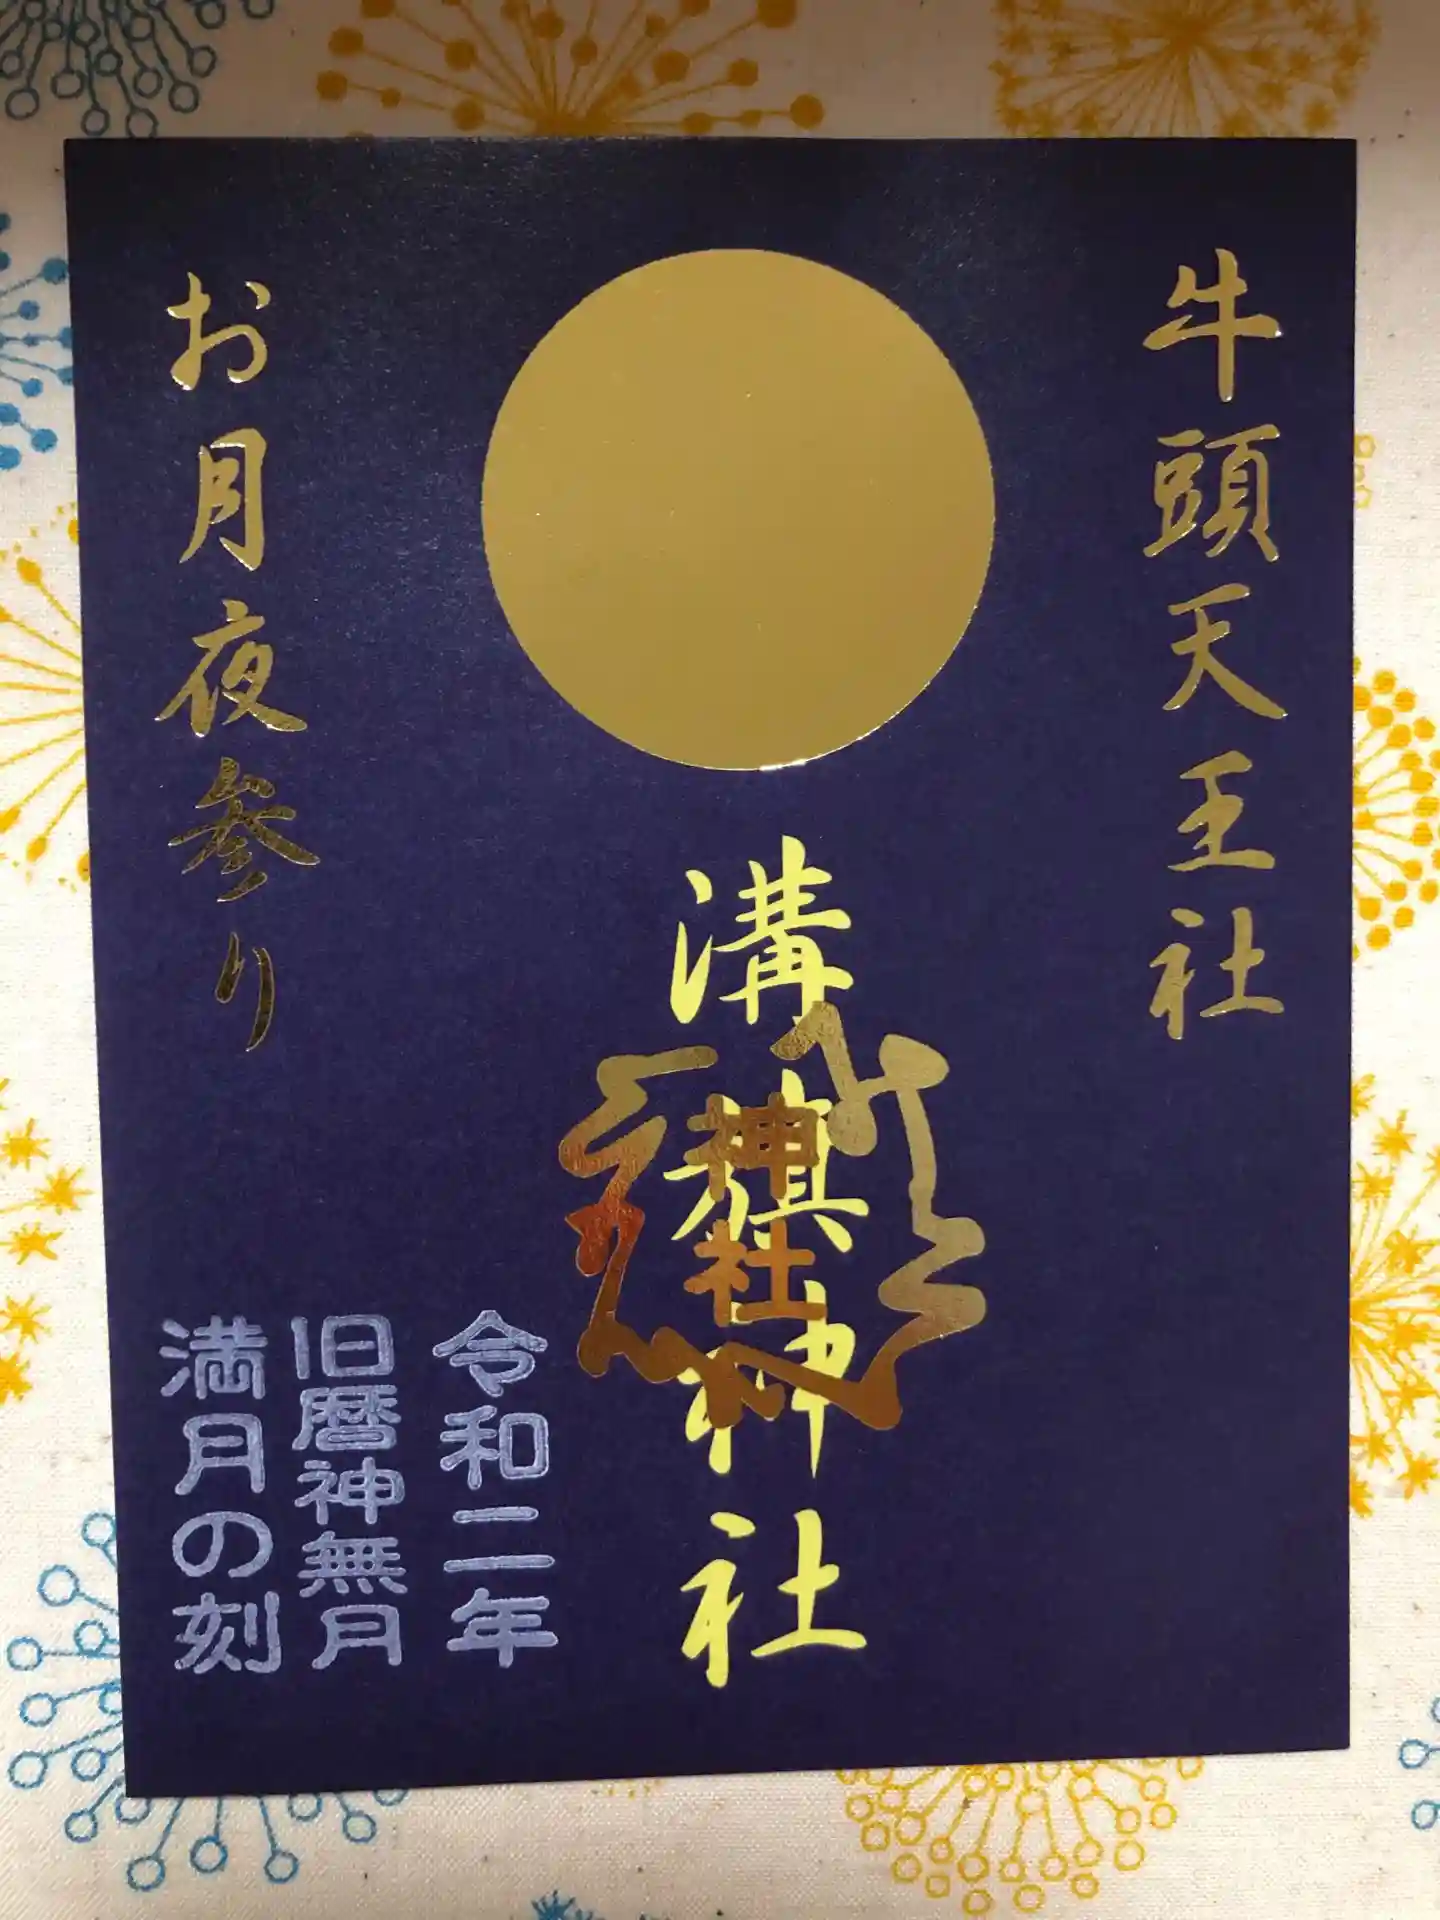 牛頭天王社
溝旗神社
神社
令和二年
旧暦神無月
満月の刻
お月夜参り